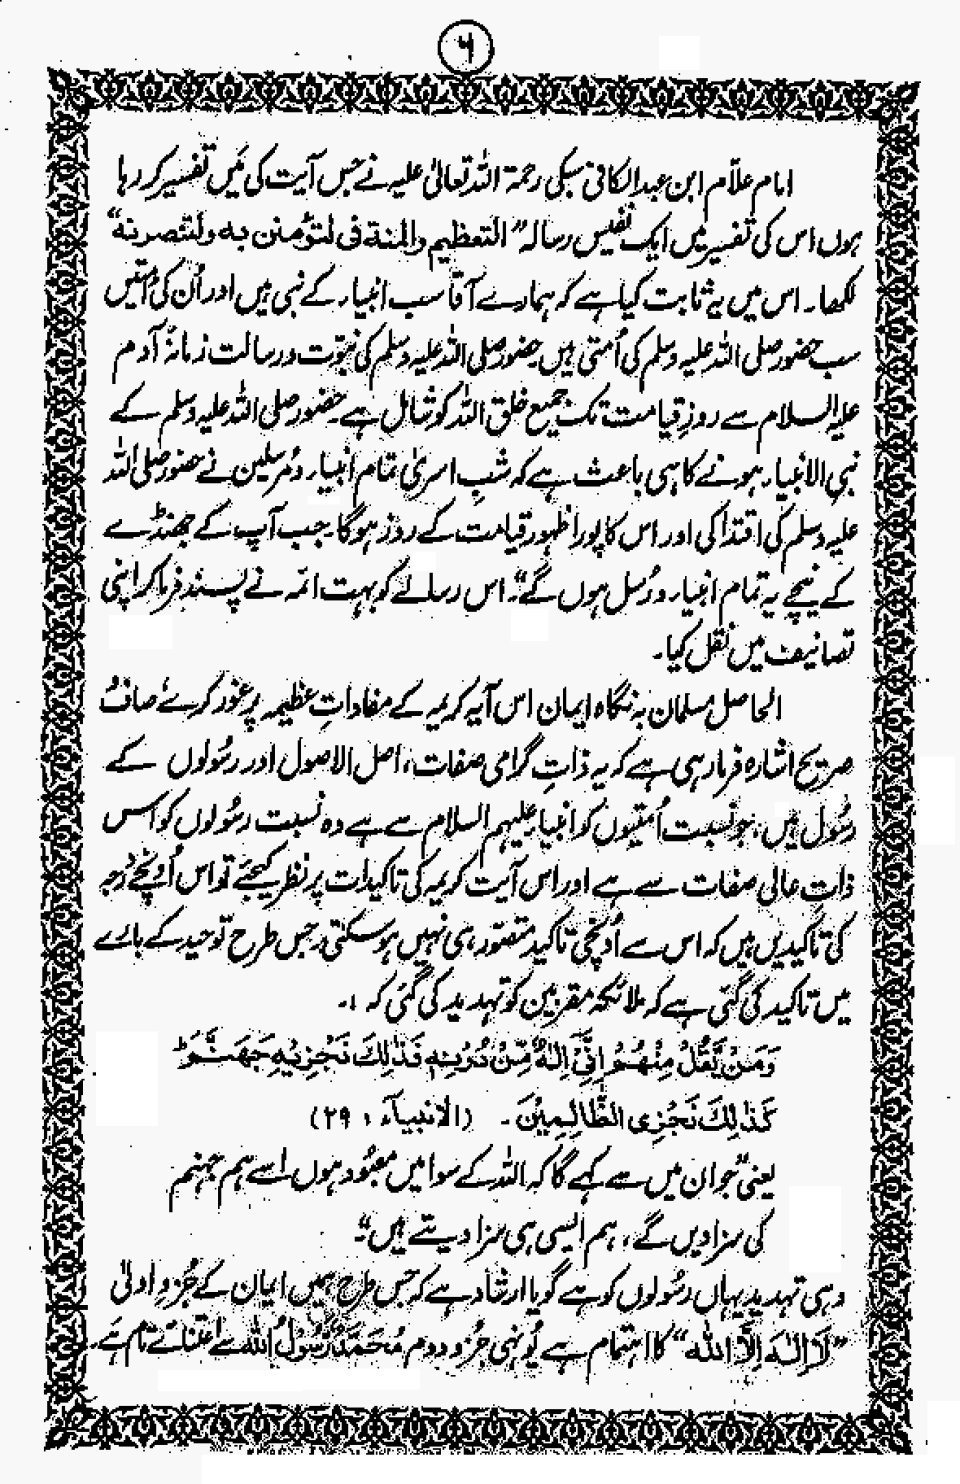 ۶
امام علّام ابن عبدالکافی سبکی رحمۃ اللہ تعالیٰ علیہ نے جس آیت کی میں تفسیر کر رہا
ہوں اس کی تفسیر میں ایک نفیس رسالہ "التعظیم والمنۃ فی لتؤمنن بہ ولتنصرنہ"
لکھا۔ اس میں یہ ثابت کیا ہے کہ ہمارے آقا سب انبیاء کے نبی ہیں اور اُن کی اُمتیں
سب حضور صلی اللہ علیہ وسلم کی اُمتی ہیں۔ حضور صلی اللہ علیہ وسلم کی نبوّت و رسالت زمانۂ آدم
علیہ السلام سے روزِ قیامت تک جمیع خلق اللہ کو شامل ہے۔ حضور صلی اللہ علیہ وسلم کے
نبی الانبیاء ہونے کا ہی باعث ہے کہ شبِ اسریٰ تمام انبیاء و مُرسلین نے حضور صلی اللہ
علیہ وسلم کی اقتدا کی اور اس کا پورا ظہور قیامت کے روز ہوگا۔ جب آپ کے جھنڈے
کے نیچے یہ تمام انبیاء و رُسل ہوں گے"۔ اس رسالے کو بہت ائمہ نے پسند فرما کر اپنی
تصانیف میں نقل کیا۔
الحاصل مسلمان بہ نگاہ ایمان اس آیہ کریمہ کے مفاداتِ عظیمہ پر غور کرے صاف
صریح اشارہ فرما رہی ہے کہ یہ ذاتِ گرامی صفات، اصل الاصول اور رسُولوں کے
رسُول ہیں، جو نسبت اُمتیوں کو انبیاء علیہم السلام سے ہے وہ نسبت رسُولوں کو اس
ذاتِ عالی صفات سے ہے اور اس آیت کریمہ کی تاکیدات پر نظر کیجئے تو اس اُونچے درجہ
کی تاکیدیں ہیں کہ اس سے اُونچی تاکید متصّور ہی نہیں ہو سکتی۔ جس طرح توحید کے بارے
میں تاکید کی گئی ہے کہ ملائکہ مقربین کو تہدید کی گئی کہ :۔
وَمَنْ يَّقُلْ مِنْهُمْ اِنِّيْٓ اِلٰهٌ مِّنْ دُوْنِهٖ فَذٰلِكَ نَجْزِيْهِ جَهَنَّمَ ؕ
كَذٰلِكَ نَجْزِی الظّٰلِمِيْنَ ۔ (الانبیآء : ۲۹)
یعنی "جو ان میں سے کہے گا کہ اللہ کے سوا میں معبُود ہوں اسے ہم جہنم
کی سزا دیں گے، ہم ایسی ہی سزا دیتے ہیں"۔
وہی تہدید یہاں رسُولوں کو ہے گویا ارشاد ہے کہ جس طرح ہمیں ایمان کے جُزوِ اولیٰ
"لَا اِلٰهَ اِلَّا الله" کا اہتمام ہے یُونہی جُزو دوم مُحَمَّدٌ رَّسُوْلُ الله سے اعتنائے تام ہے۔